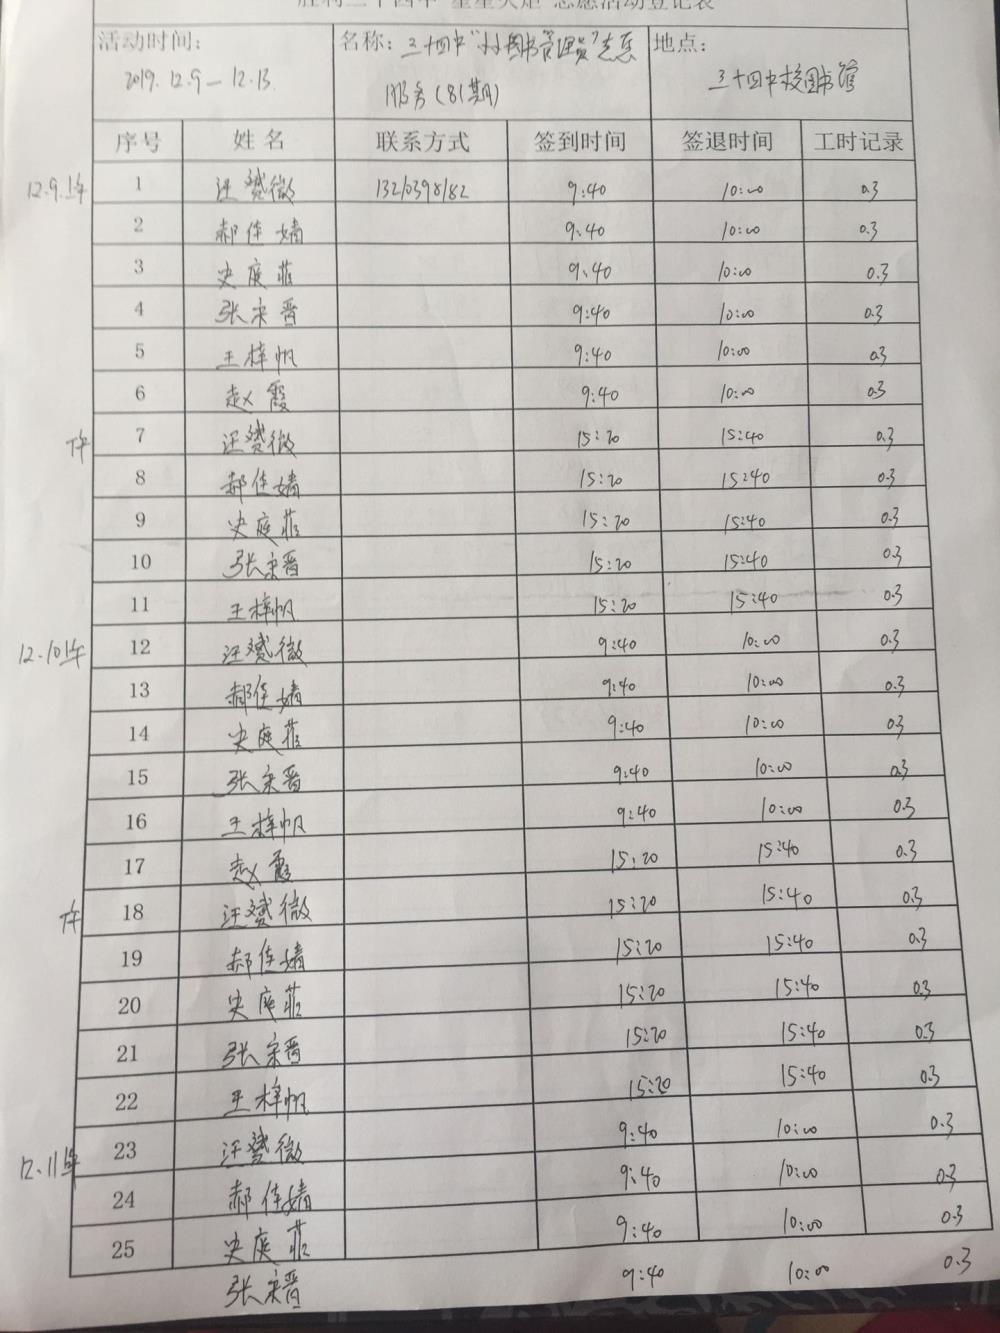 胜利三十四中"星星火炬"志愿活动登记表
活动时间： 名称：三十四中"小小图书管理员"志愿 地点：
2019.12.9—12.13. 服务(81期) 三十四中校图书馆
序号 姓名 联系方式 签到时间 签退时间 工时记录
12.9.上午 1 汪赟微 13210398182 9:40 10:00 0.3
2 郝佳婧 9:40 10:00 0.3
3 史庭菲 9:40 10:00 0.3
4 张宋晋 9:40 10:00 0.3
5 王梓帆 9:40 10:00 0.3
6 赵霞 9:40 10:00 0.3
下午 7 汪赟微 15:20 15:40 0.3
8 郝佳婧 15:20 15:40 0.3
9 史庭菲 15:20 15:40 0.3
10 张宋晋 15:20 15:40 0.3
11 王梓帆 15:20 15:40 0.3
12.10上午 12 汪赟微 9:40 10:00 0.3
13 郝佳婧 9:40 10:00 0.3
14 史庭菲 9:40 10:00 0.3
15 张宋晋 9:40 10:00 0.3
16 王梓帆 9:40 10:00 0.3
17 赵霞 15:20 15:40 0.3
下午 18 汪赟微 15:20 15:40 0.3
19 郝佳婧 15:20 15:40 0.3
20 史庭菲 15:20 15:40 0.3
21 张宋晋 15:20 15:40 0.3
22 王梓帆 15:20 15:40 0.3
12.11上午 23 汪赟微 9:40 10:00 0.3
24 郝佳婧 9:40 10:00 0.3
25 史庭菲 9:40 10:00 0.3
张宋晋 9:40 10:00 0.3